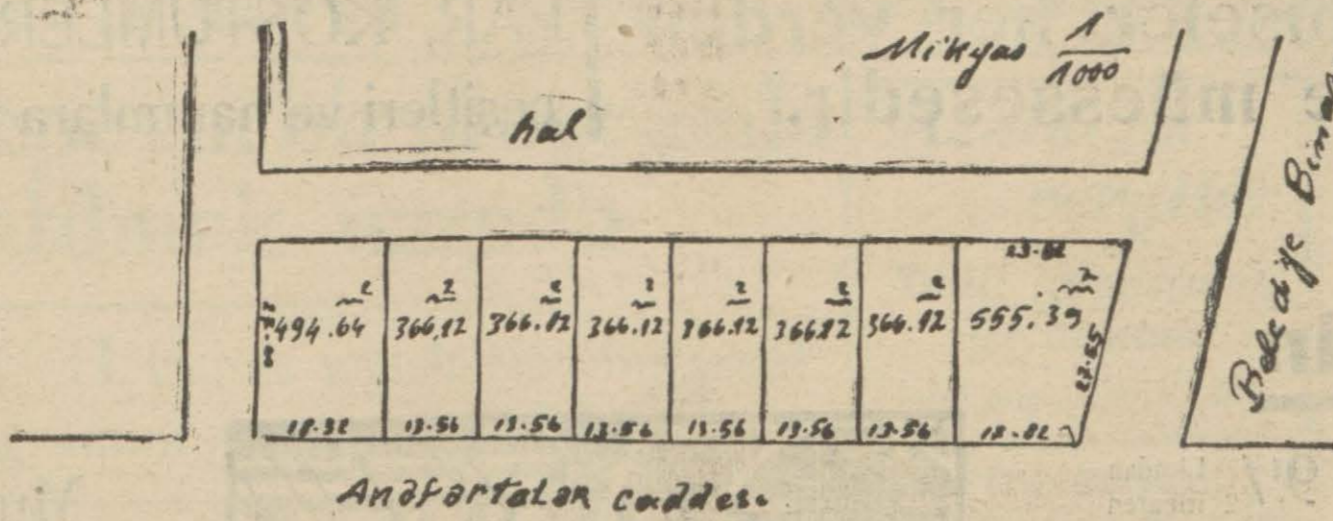 Mikyas 1/1000
hal
Belediye Binası
23.82
494.64 366,12 366.12 366.12 366.12 366.12 366.12 555.39
27.65
18.32 13.56 13.56 13.56 13.56 13.56 13.56 18.02
Anafartalar caddesi